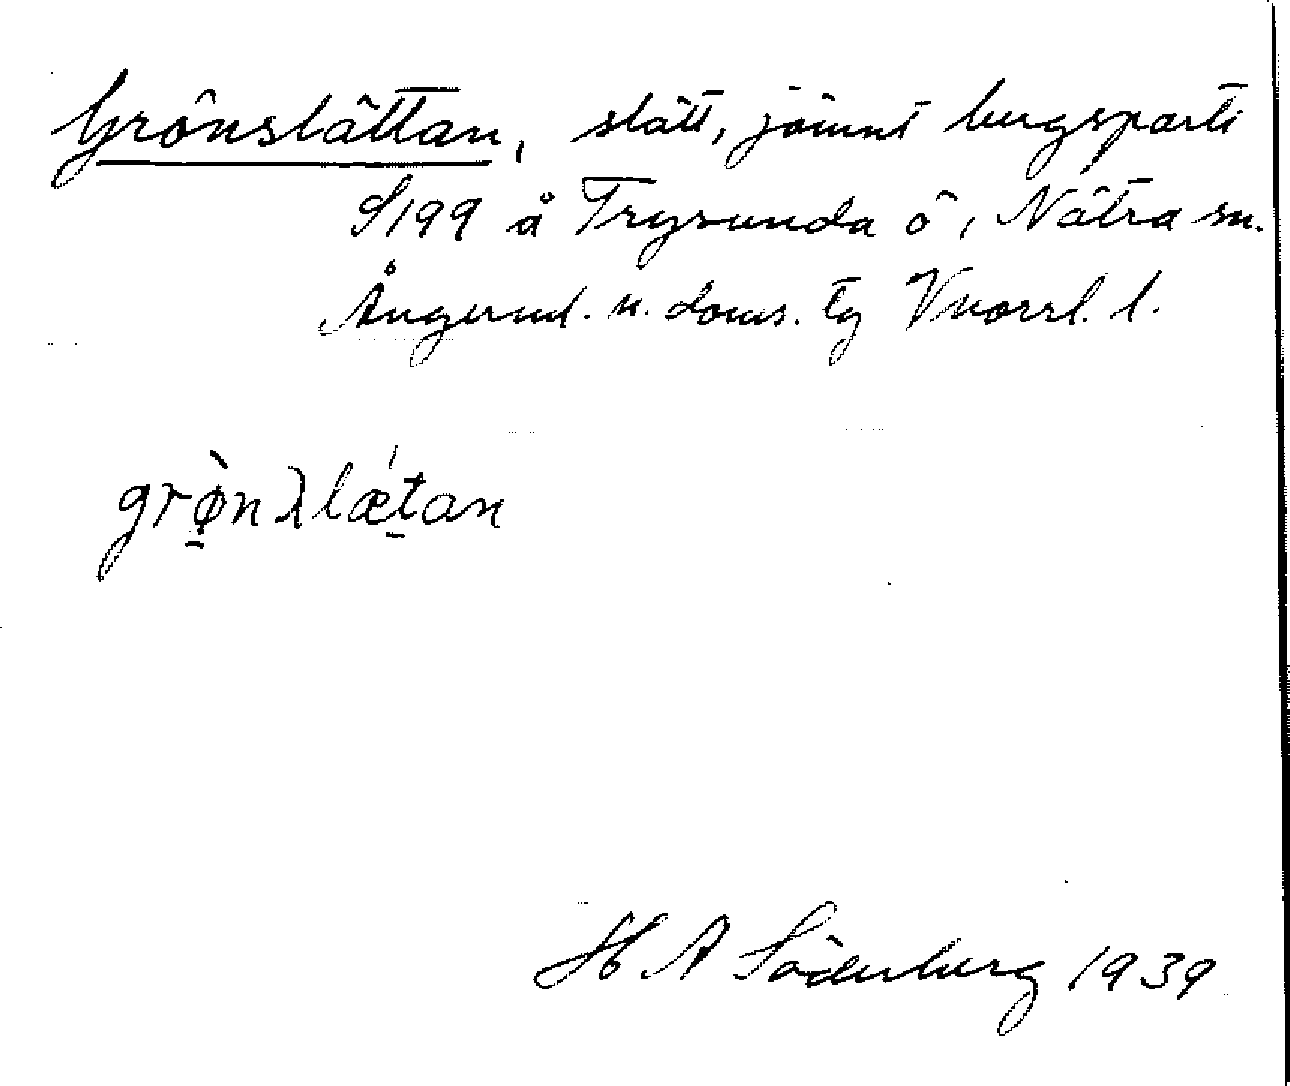 Grönslättan, slätt, jämnt bergsparti
S199 å Trysunda ö, Nätra sn.
Ångerml. n. doms. tg Vnorrl. l.
grø̀nslǽtan
H A Söderberg 1939